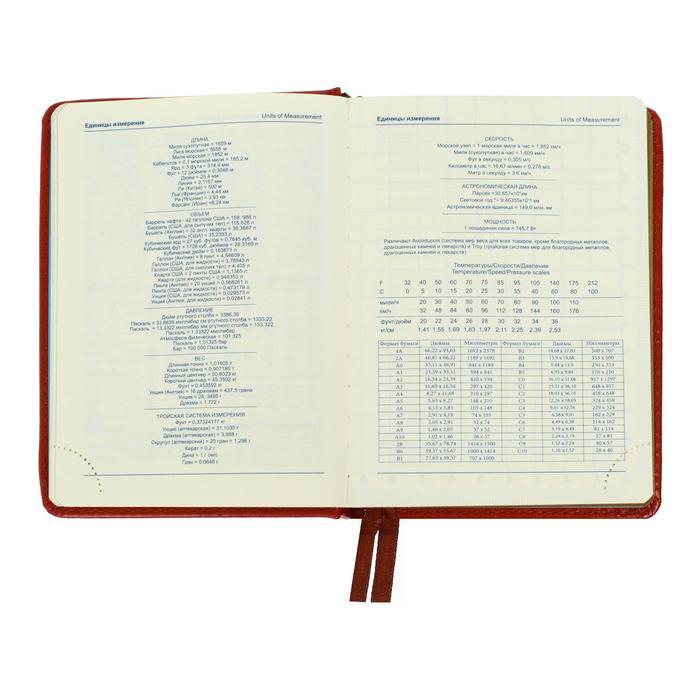 Единицы измерения
Units of Measurement
ДЛИНА
Миля сухопутная = 1609 м
Лига морская = 5556 м
Миля морская = 1852 м
Кабельтов = 0,1 морской мили = 185,2 м
Ярд = 3 фута = 914,4 мм
Фут = 12 дюймов = 0,3048 м
Дюйм = 25,4 мм
Линия = 2,1167 мм
Ли (Китай) = 500 м
Лье (Франция) = 4,44 км
Ри (Япония) = 3,93 км
Фарсанг (Иран) =6,24 км
ОБЪЕМ
Баррель нефти - 42 галлона США = 158, 988 л
Баррель (США, для сыпучих тел) = 115,628 л
Бушель (Англия) = 32 англ. кварты = 36,3687 л
Бушель (США) = 35,2393 л
Кубический ярд = 27 куб. футов = 0,7645 куб. м
Кубический фут = 1728 куб. дюймов = 28,3169 л
Кубический дюйм = 0,163871 л
Галлон (Англия) = 8 пинт = 4,54609 л
Галлон (США, для жидкости) = 3,78543 л
Галлон (США, для сыпучих тел) = 4,405 л
Кварта США = 2 пинты США = 1,1365 л
Кварта (для жидкости) = 0,946353 л
Пинта (Англия) = 20 унций = 0,568261 л
Пинта (США, для жидкости) = 0,473179 л
Унция (США, для жидкости) = 0,029573 л
Унция (Англия, для жидкости) = 0,02841 л
ДАВЛЕНИЕ
Дюйм ртутного столба = 3386,39
Паскаль = 33,8639 миллибар см ртутного столба = 1333,22
Паскаль = 13,3322 миллибар мм ртутного столба = 133,322
Паскаль = 1,33322 миллибар
Атмосфера физическая = 101 325
Паскаль = 1,01325 бар
Бар = 100 000 Паскаль
ВЕС
Длинная тонна = 1,01605 т
Короткая тонна = 0,907185 т
Длинный центнер = 50,8023 кг
Короткий центнер = 45,3592 кг
Фунт = 0,453592 кг
Унция (Англия) = 16 драхмам = 437,5 грана
Унция = 28, 3495 г
Драхма = 1,772 г
ТРОЙСКАЯ СИСТЕМА ИЗМЕРЕНИЯ
Фунт = 0,37324177 кг
Унция (аптекарская) = 31,1035 г
Драхма (аптекарская) = 3,888 г
Скрупул (аптекарский) = 20 гран = 1,296 г
Карат = 0,2 г
Дина = 1 г см/с
Гран = 0,0648 г
Единицы измерения
Units of Measurement
СКОРОСТЬ
Морской узел = 1 морская миля в час = 1,852 км/ч
Миля (сухопутная) в час = 1,609 км/ч
Фут в секунду = 0,305 м/с
Километр в час = 16,67 м/мин = 0,278 м/с
Метр в секунду = 3,6 км/ч
АСТРОНОМИЧЕСКАЯ ДЛИНА
Астрономическая единица = 149,6 млн. км
МОЩНОСТЬ
1 лошадиная сила = 745,7 Вт
Различают Avoirdupois (система мер веса для всех товаров, кроме благородных металлов,
драгоценных камней и лекарств) и Troy (тройская система мер для благородных металлов,
драгоценных камней и лекарств)
Температуры/Скорости/Давление
Temperature/Speed/Pressure scales
F 32 40 50 60 70 75 85 95 105 140 175 212
C 0 5 10 15 20 25 30 35 40 60 80 100
мили/ч 20 30 40 50 60 70 80 90 100 110
км/ч 32 48 64 80 96 112 128 144 160 176
фунт/дюйм 20 22 24 26 28 30 32 34 36
кг/см 1,41 1,55 1,69 1,83 1,97 2,11 2,25 2,39 2,53
Формат бумаги Дюймы Миллиметры Формат бумаги Дюймы Миллиметры
4A 66,22 x 93,62 1692 x 2378 B2 19,68 x 27,83 500 x 707
2A 46,81 x 66,22 1189 x 1692 B3 13,9 x 19,68 353 x 500
A0 33,11 x 46,81 841 x 1189 B4 9,84 x 13,9 250 x 353
A1 23,39 x 33,11 594 x 841 B5 6,93 x 9,84 176 x 250
A2 16,54 x 23,39 420 x 594 C0 36,10 x 51,06 917 x 1297
A3 11,69 x 16,54 297 x 420 C1 25,51 x 36,10 648 x 917
A4 8,27 x 11,69 210 x 297 C2 18,03 x 36,10 458 x 648
A5 5,83 x 8,27 148 x 210 C3 12,76 x 18,03 324 x 458
A6 4,13 x 5,83 105 x 148 C4 9,01 x 12,76 229 x 324
A7 2,91 x 4,18 74 x 105 C5 6,38 x 9,01 162 x 229
A8 2,05 x 2,91 52 x 74 C6 4,49 x 6,38 114 x 162
A9 1,46 x 2,05 37 x 52 C7 3,19 x 4,49 81 x 114
A10 1,02 x 1,46 26 x 37 C8 2,24 x 3,19 57 x 81
2B 55,67 x 78,74 1414 x 2000 C9 1,57 x 2,24 40 x 57
B0 39,37 x 55,67 1000 x 1414 C10 1,10 x 1,57 28 x 40
B1 27,83 x 39,37 707 x 1000